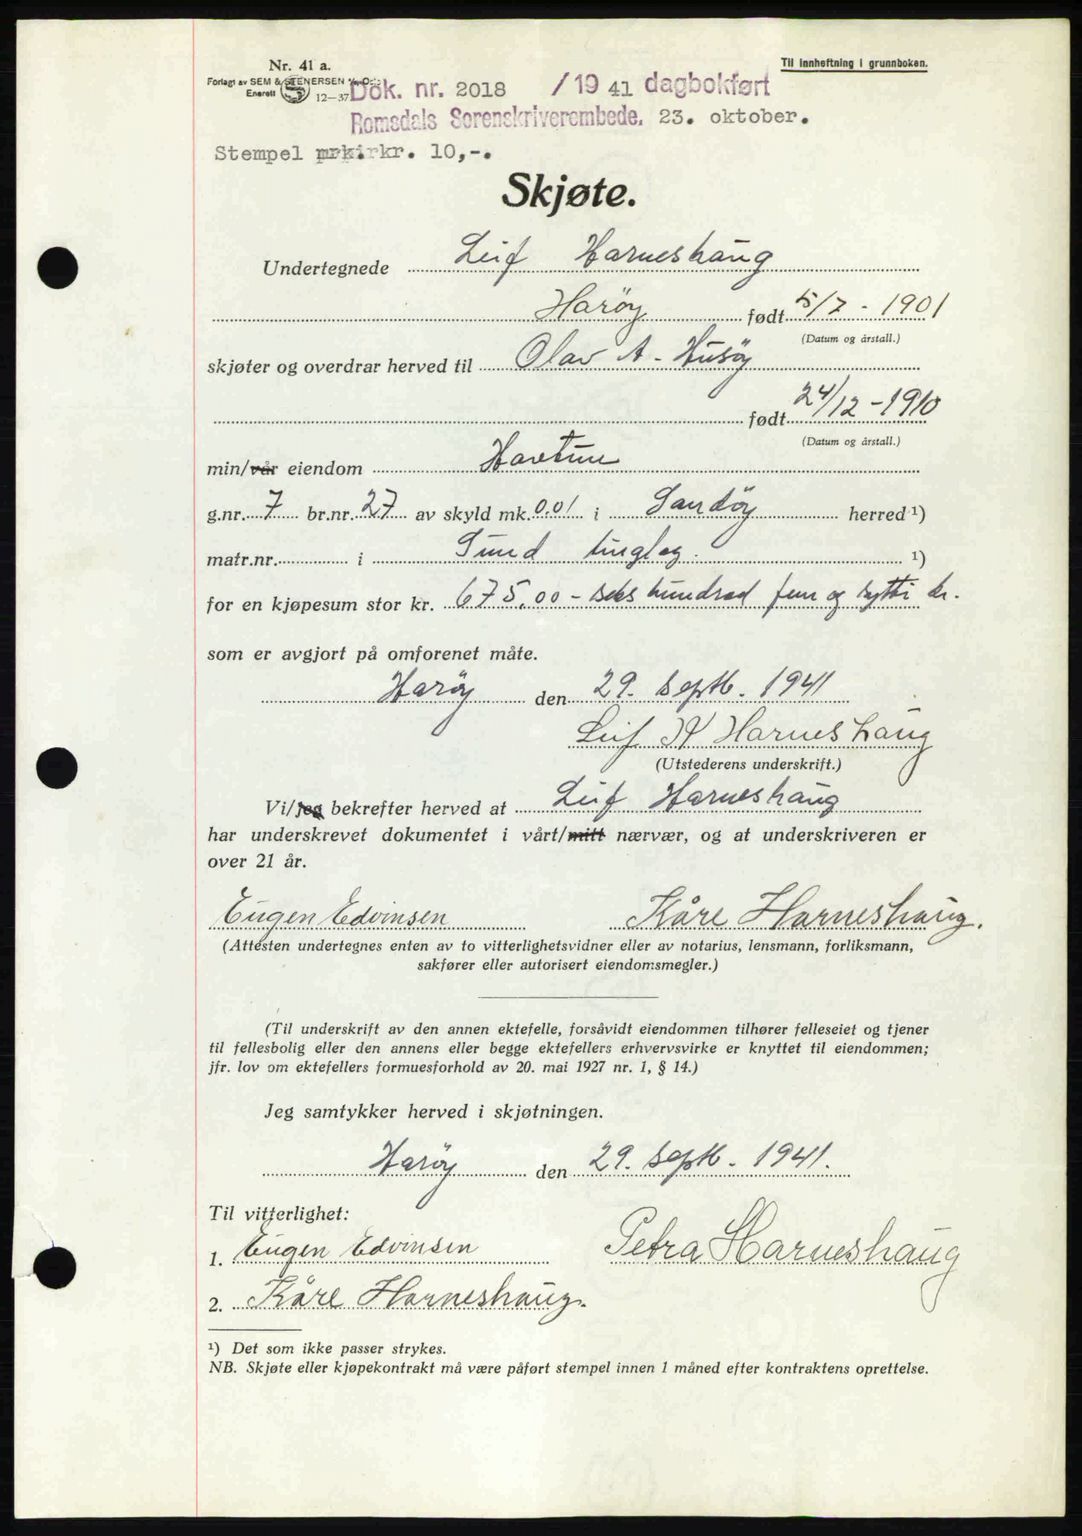 Nr. 41 a.
Til innheftning i grunnboken.
Forlagt av SEM & STENERSEN A/S, Oslo
Enerett 12—37
Dok. nr. 2018 /19 41 dagbokført
Romsdals Sorenskriverembede. 23. oktober.
Stempel kr. 10,-.
Skjøte.
Undertegnede Leif Harneshaug
Harøy født 5/7 - 1901
(Datum og årstall.)
skjøter og overdrar herved til Olav A. Husøy
født 24/12 - 1910
(Datum og årstall.)
min/vår eiendom Havtun
g.nr. 7 br.nr. 27 av skyld mk. 0.01 i Sandøy herred ¹)
matr.nr. i Sund tinglag. ¹)
for en kjøpesum stor kr. 675,00 - seks hundrad fem og sytti kr.
som er avgjort på omforenet måte.
Harøy den 29. septb. 1941
Leif K Harneshaug
(Utstederens underskrift.)
Vi/jeg bekrefter herved at Leif Harneshaug
har underskrevet dokumentet i vårt/mitt nærvær, og at underskriveren er
over 21 år.
Eugen Edvinsen Kåre Harneshaug.
(Attesten undertegnes enten av to vitterlighetsvidner eller av notarius, lensmann, forliksmann,
sakfører eller autorisert eiendomsmegler.)
(Til underskrift av den annen ektefelle, forsåvidt eiendommen tilhører felleseiet og tjener
til fellesbolig eller den annens eller begge ektefellers erhvervsvirke er knyttet til eiendommen;
jfr. lov om ektefellers formuesforhold av 20. mai 1927 nr. 1, § 14.)
Jeg samtykker herved i skjøtningen.
Harøy den 29. septb. 1941.
Til vitterlighet:
1. Eugen Edvinsen Petra Harneshaug
2. Kåre Harneshaug.
¹) Det som ikke passer strykes.
NB. Skjøte eller kjøpekontrakt må være påført stempel innen 1 måned efter kontraktens oprettelse.